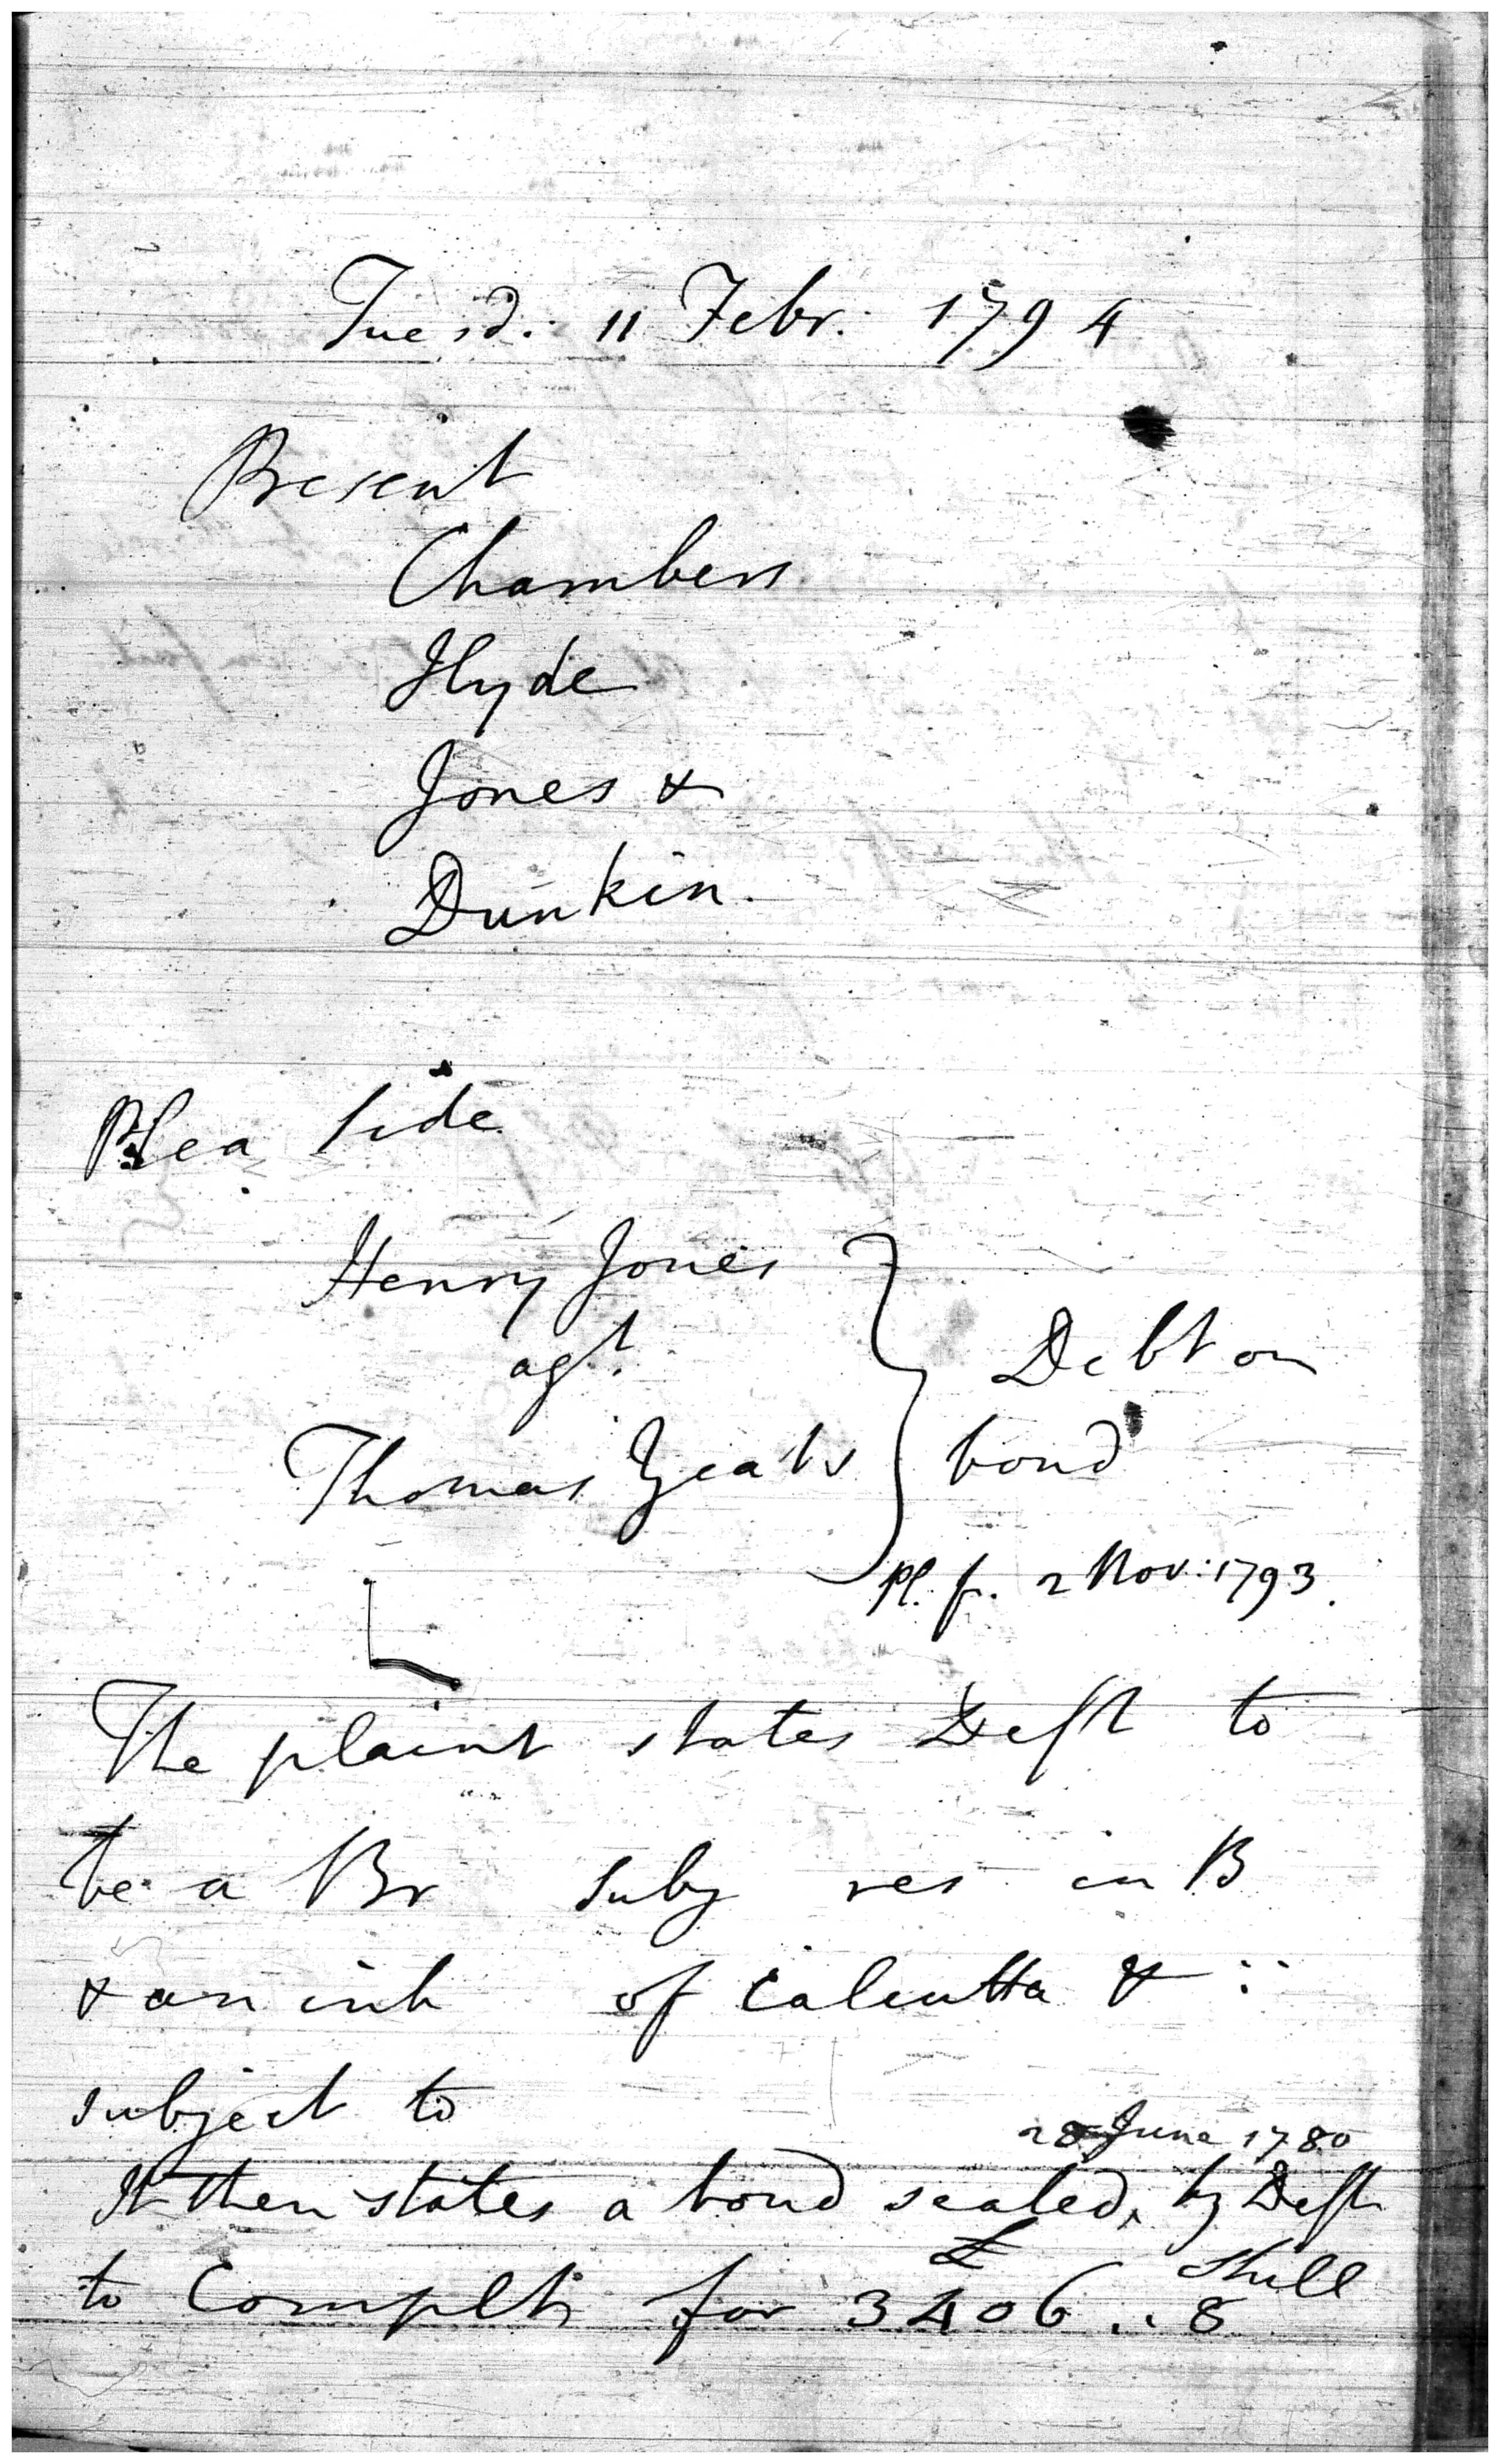 Tuesd: 11 Febr: 1794
Present
Chambers
Hyde
Jones &
Dunkin.
Plea Side
Henry Jones
agt.
Thomas Yeats
Debt on
bond
pl. f. 2 Nov: 1793.
The plaint states Deft to
be a Br Subj res in B
& an inh of Calcutta & ::
subject to
28 June 1780
It then states a bond sealed, by Deft
£ Shill
to Complt for 3406 .. 8